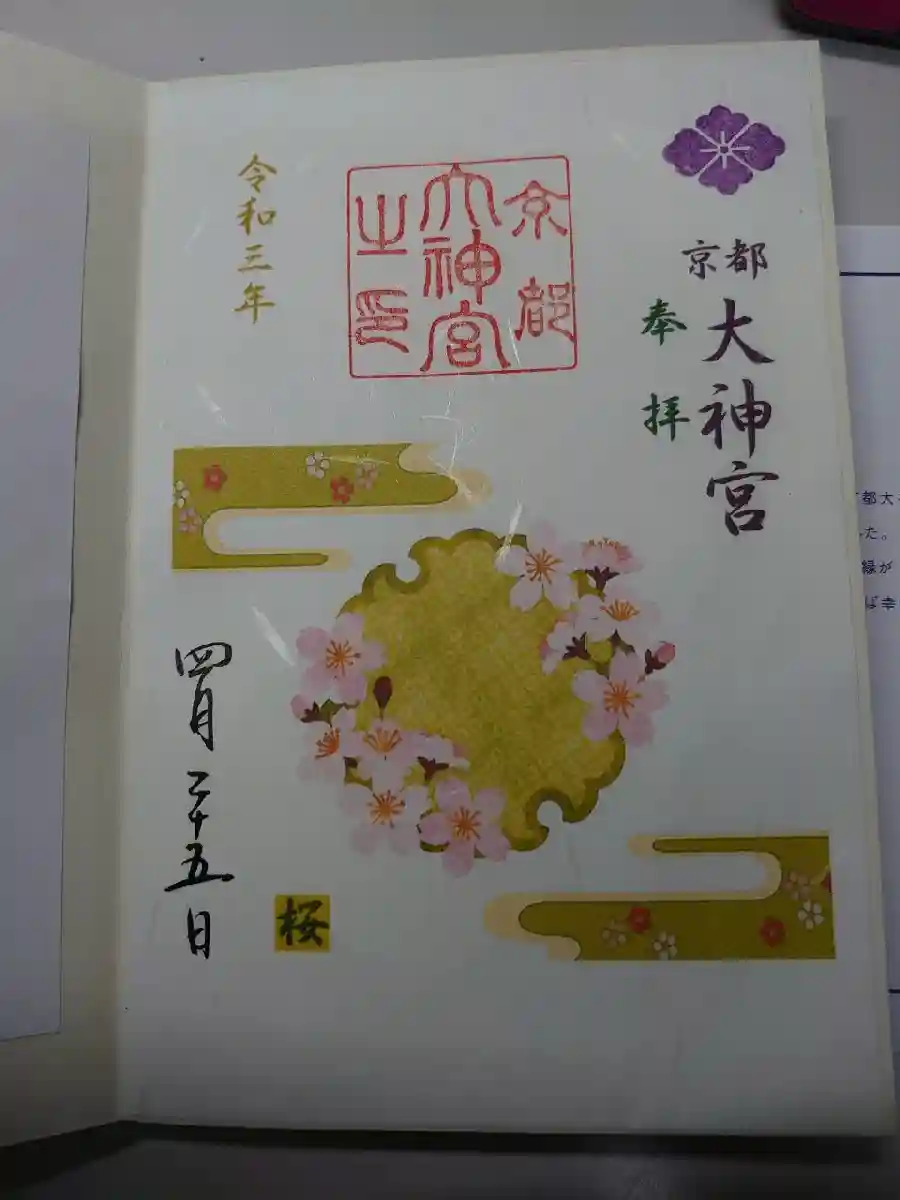 京都
大神宮
奉拝
京都
大神宮
之印
令和三年
四月二十五日
桜
都大
た。
縁が
ば幸